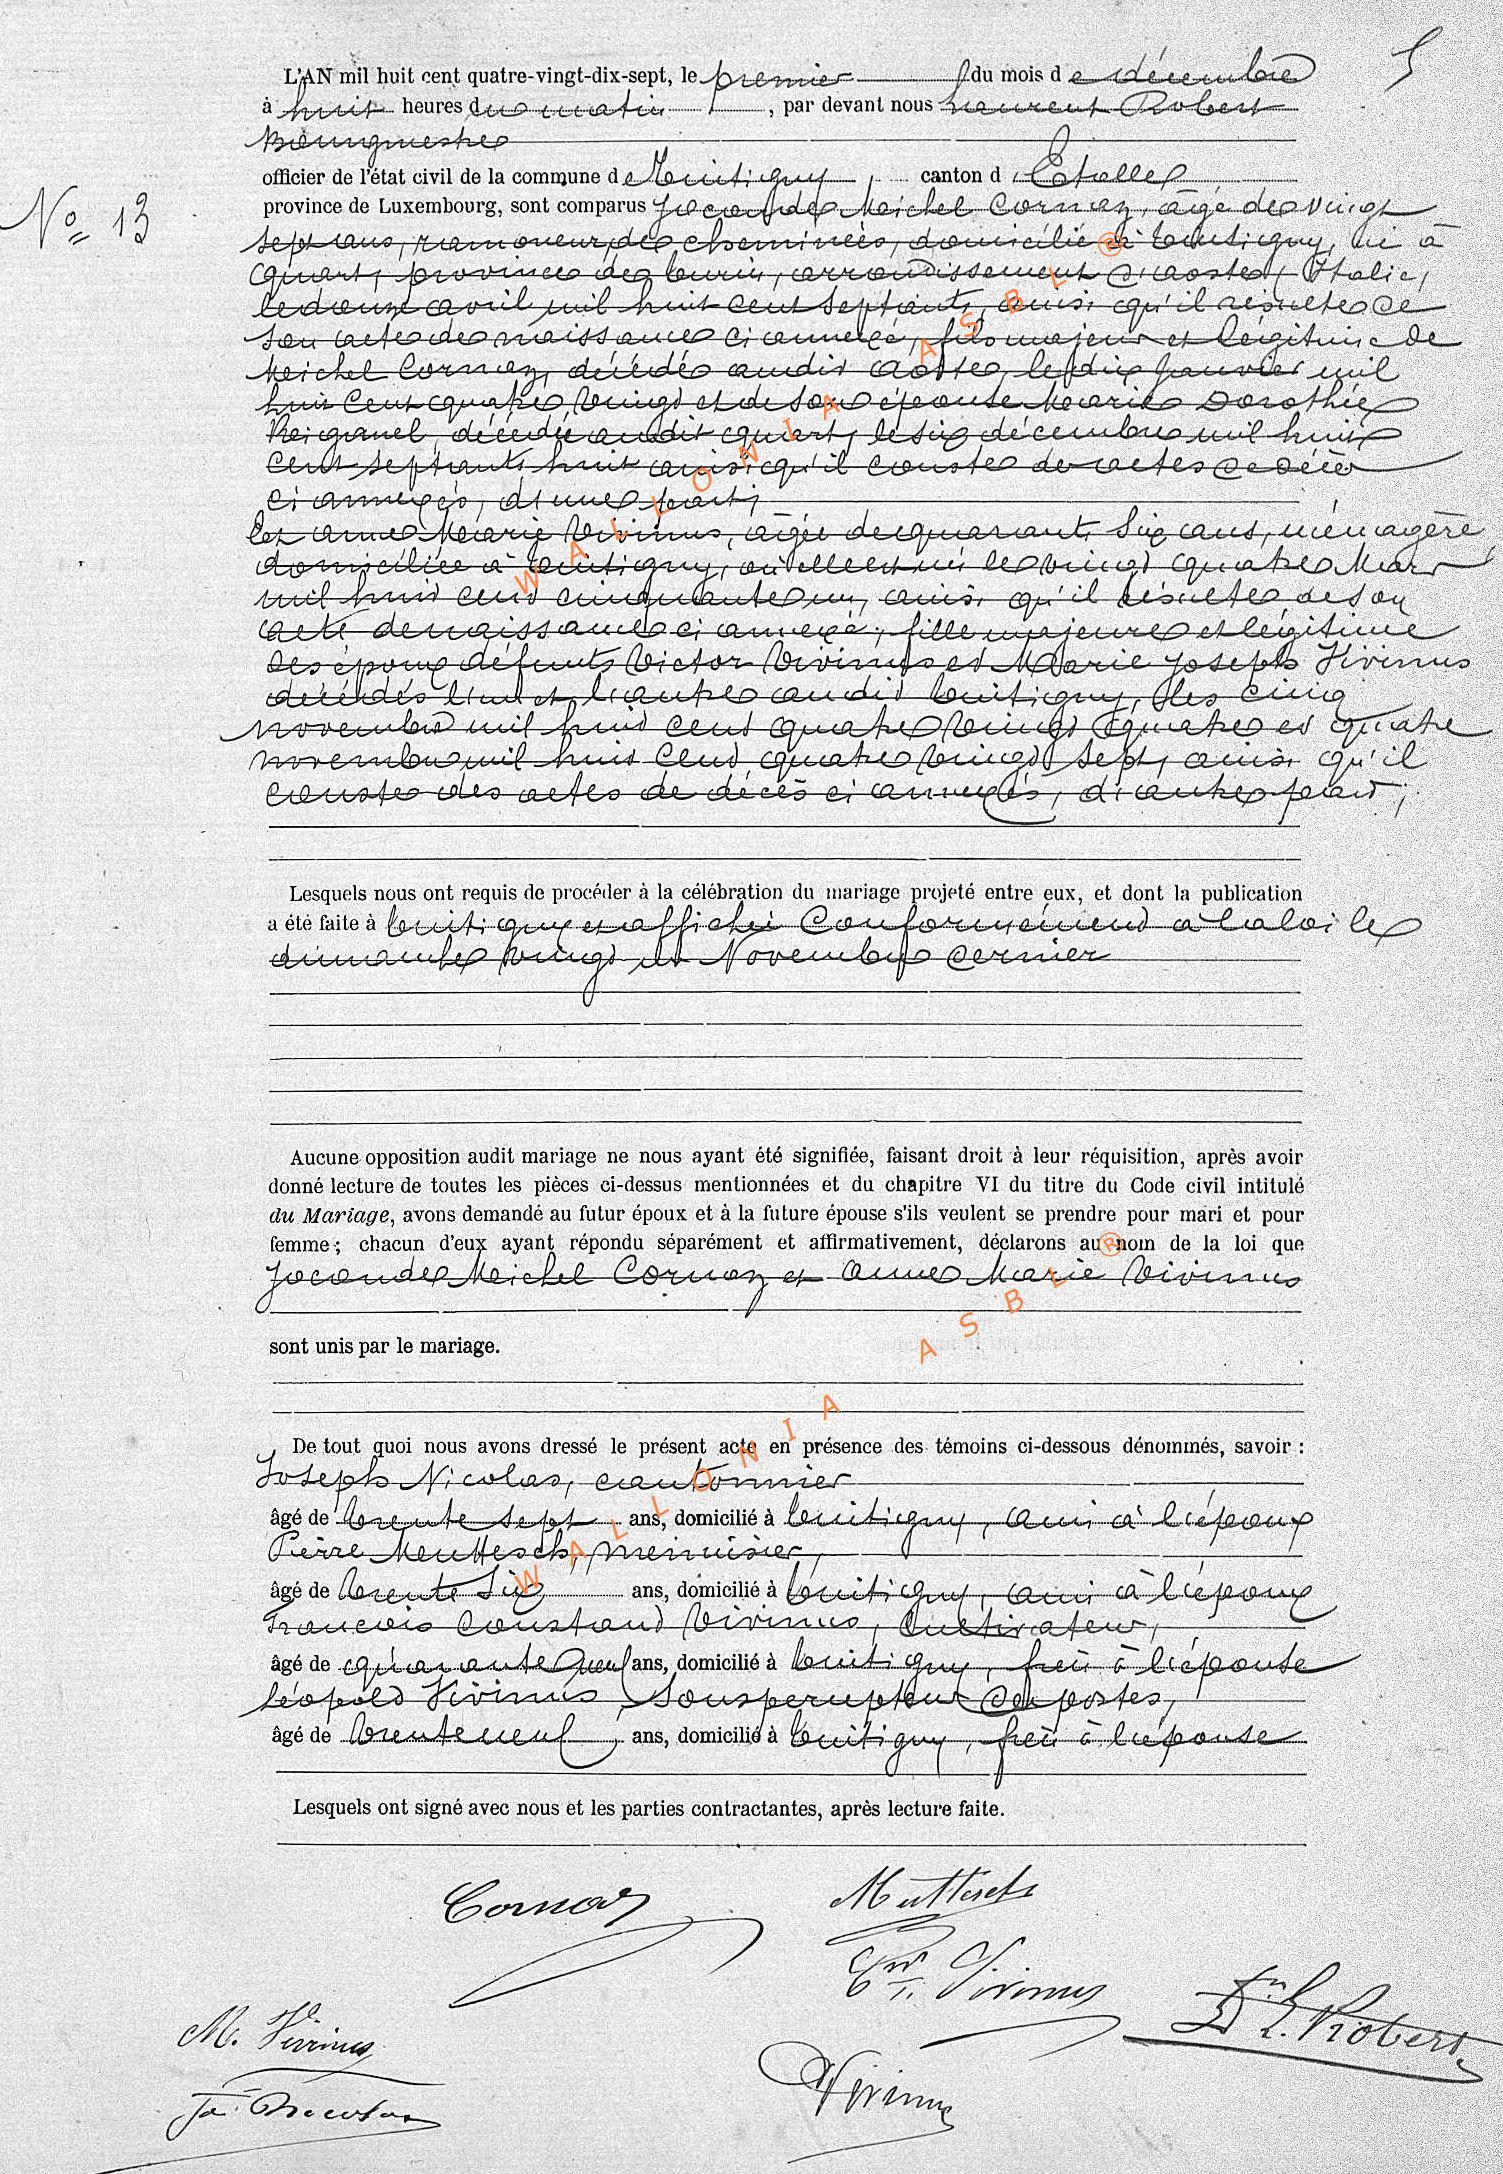 5
L'AN mil huit cent quatre-vingt-dix-sept, le premier du mois de décembre
à huit heures du matin, par devant nous Laurent Robert
Bourgmestre
officier de l'état civil de la commune de Tintigny, canton d'Etalle
N° 13
province de Luxembourg, sont comparus Joconde Meichel Cornaz, âgé de vingt
sept ans, ramoneur de cheminées, domicilié à Tintigny, né à
Quart, province de Turin, arrondissement d'aoste, Italie,
le douze avril mil huit cent septante, ainsi qu'il résulte de
son acte de naissance ci annexé, fils majeur et légitime de
Meichel Cornaz, décédé audit aoste, le dix Janvier mil
huit cent quatre vingt et de son épouse Marie Dorothée
décédée audit quart, le six décembre mil huit
cent septante huit ainsi qu'il conste des actes de décès
ci annexés, d'une part;
Et anne Marie Vivinus, âgée de quarante six ans, ménagère
domiciliée à Tintigny, où elle est né le vingt quatre Mars
mil huit cent cinquante un, ainsi qu'il résulte de son
acte de naissance ci annexé, fille majeure et légitime
des époux défunts Victor Vivinus et Marie Joseph Vivinus
décédés l'un et l'autre audit Tintigny, les cinq
novembre mil huit cent quatre vingt quatre et quatre
novembre mil huit cent quatre vingt sept, ainsi qu'il
conste des actes de décès ci annexés, d'autre part;
Lesquels nous ont requis de procéder à la célébration du mariage projeté entre eux, et dont la publication
a été faite à Tintigny et affichée Conformément à la loi le
dimanche vingt un Novembre dernier
Aucune opposition audit mariage ne nous ayant été signifiée, faisant droit à leur réquisition, après avoir
donné lecture de toutes les pièces ci-dessus mentionnées et du chapitre VI du titre du Code civil intitulé
du Mariage, avons demandé au futur époux et à la future épouse s'ils veulent se prendre pour mari et pour
femme; chacun d'eux ayant répondu séparément et affirmativement, déclarons au nom de la loi que
Joconde Meichel Cornaz et anne Marie Vivinus
sont unis par le mariage.
De tout quoi nous avons dressé le présent acte en présence des témoins ci-dessous dénommés, savoir :
Joseph Nicolas, cantonnier
âgé de trente sept ans, domicilié à Tintigny, ami à l'époux
Pierre Meuttesch, menuisier,
âgé de trente six ans, domicilié à Tintigny, ami à l'époux
François Constand Vivinus, cultivateur,
âgé de quarante neuf ans, domicilié à Tintigny, frère à l'épouse
Léopold Vivinus, sous percepteur des postes,
âgé de trente neuf, ans, domicilié à Tintigny, frère à l'épouse
Lesquels ont signé avec nous et les parties contractantes, après lecture faite.
Cornaz
Muttesch
Vivinus
L. Robert
M. Vivinus
Vivinus
Jh Nicolas
WALLONIA ASBL ®
WALLONIA ASBL ®